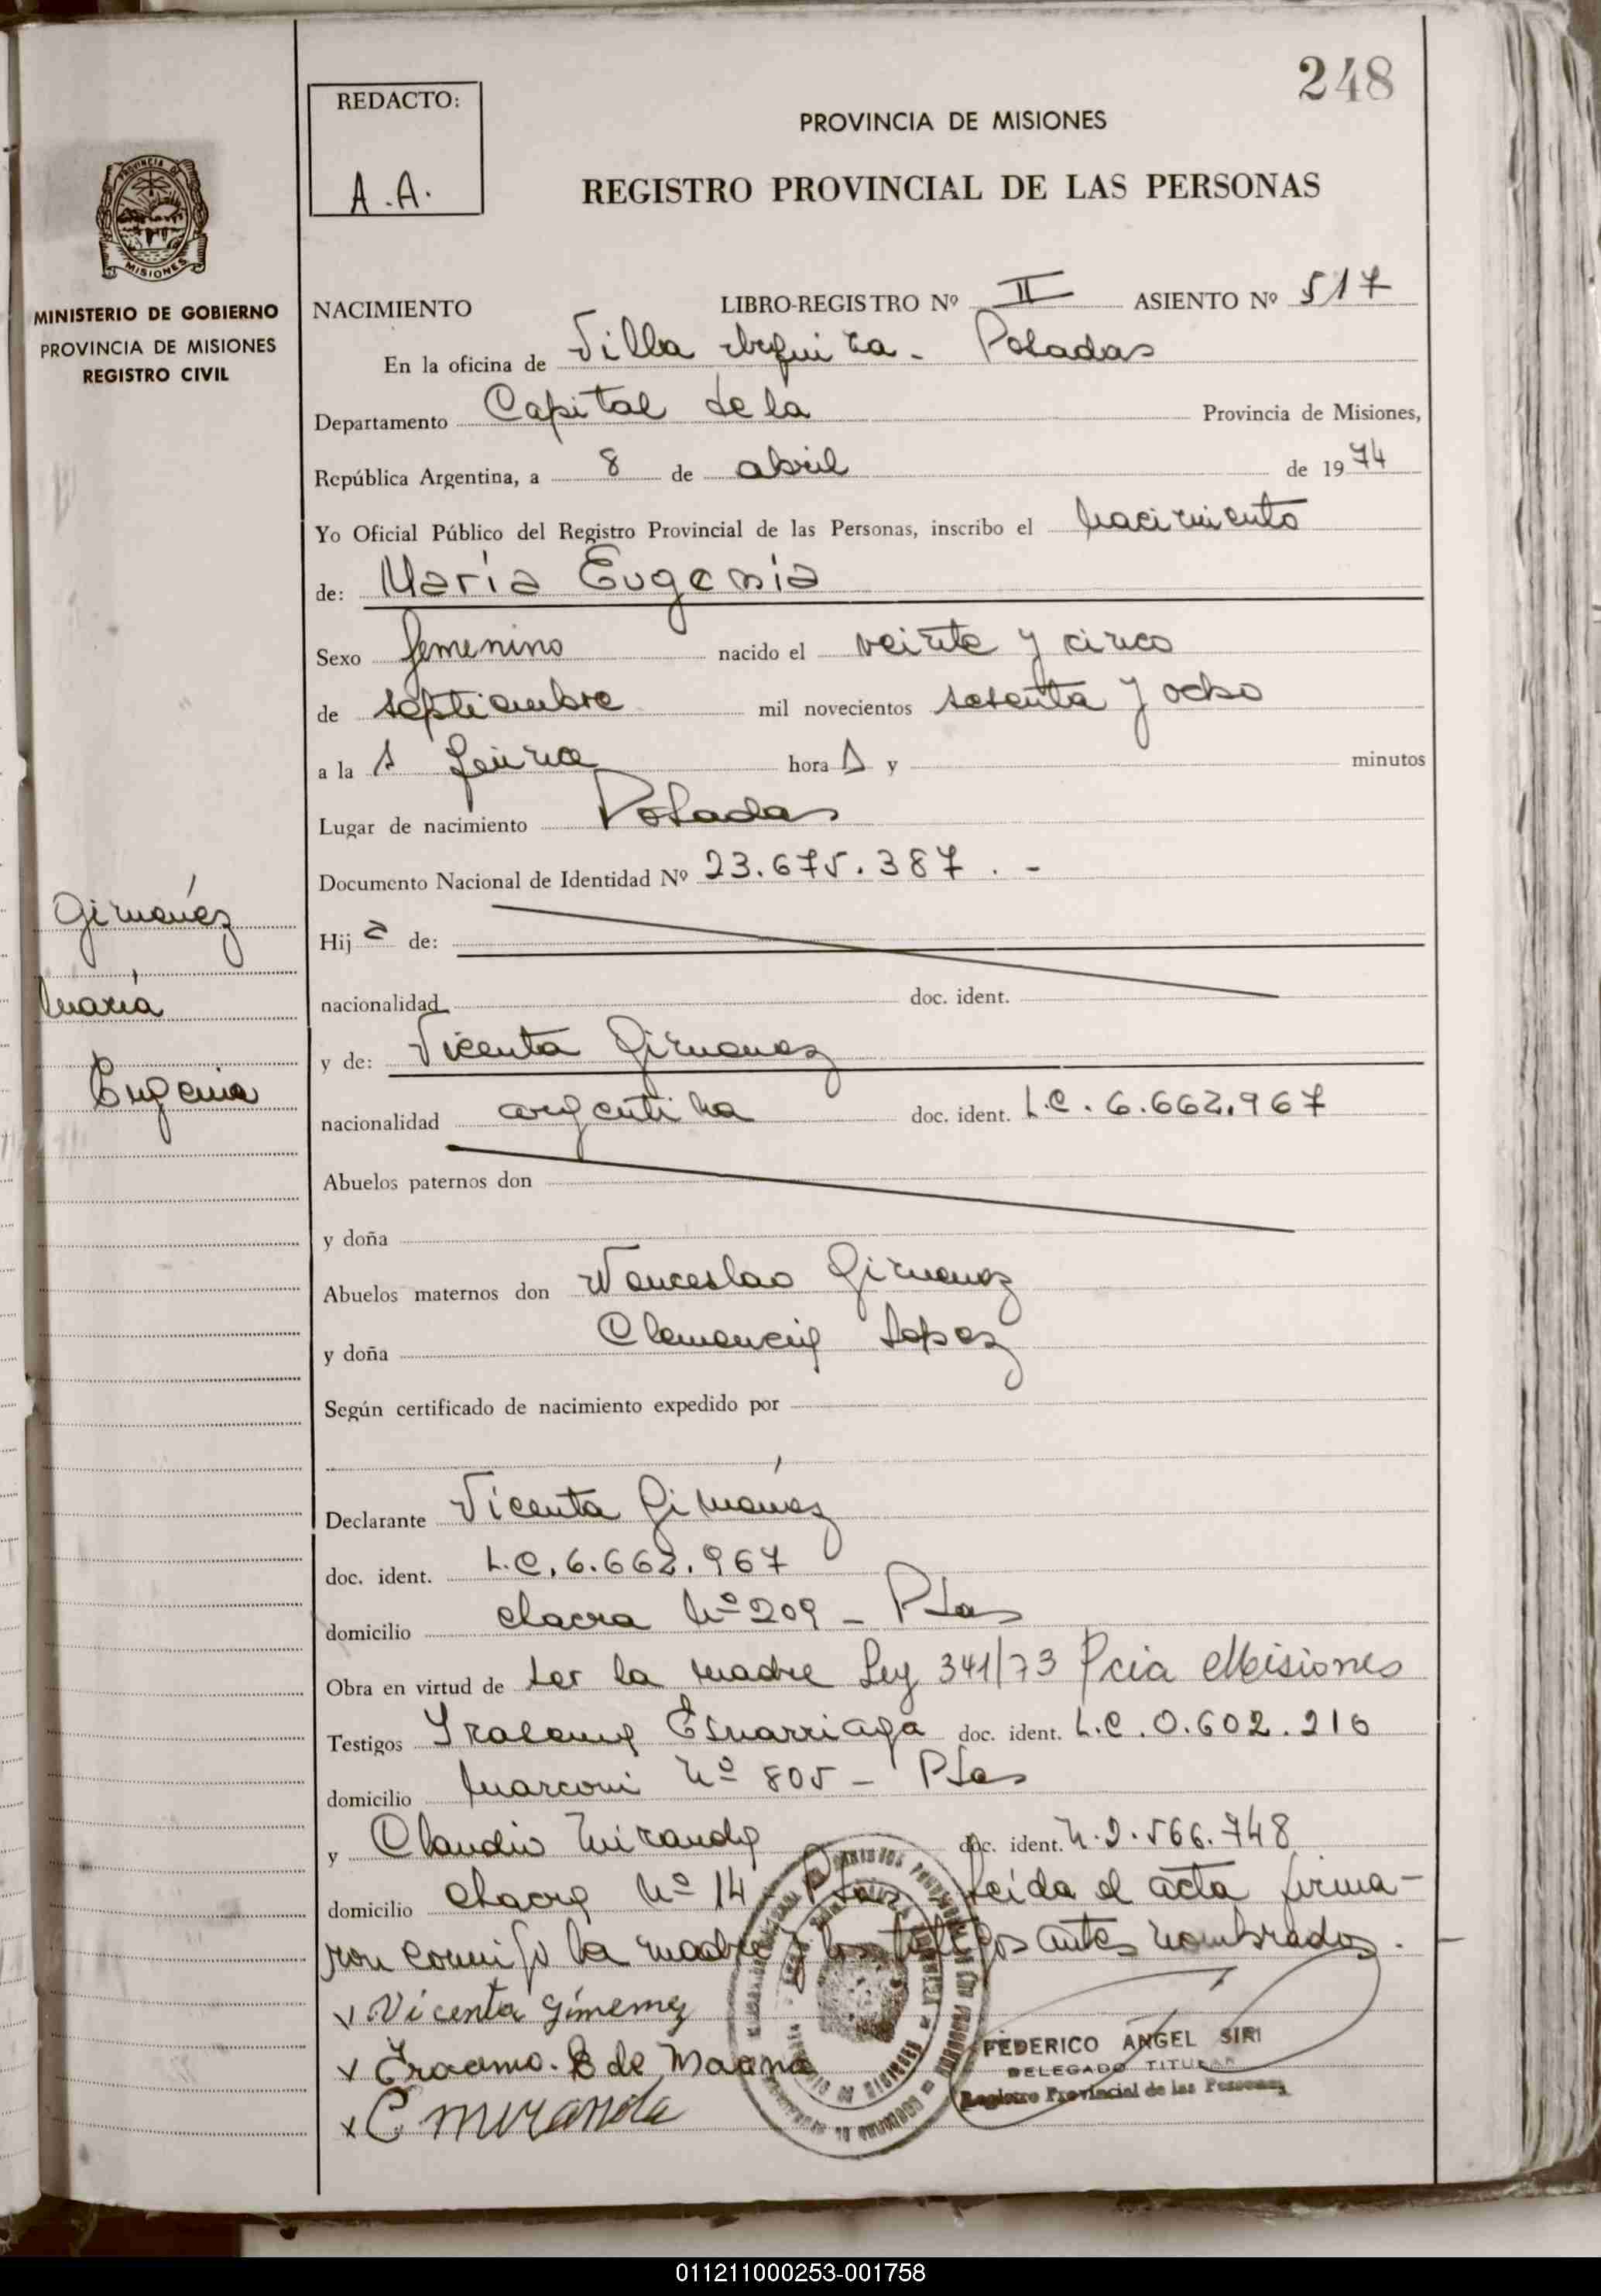 248
REDACTO:
A.A.
PROVINCIA DE MISIONES
REGISTRO PROVINCIAL DE LAS PERSONAS
PROVINCIA DE
MISIONES
MINISTERIO DE GOBIERNO
PROVINCIA DE MISIONES
REGISTRO CIVIL
NACIMIENTO LIBRO-REGISTRO Nº II ASIENTO Nº 517
En la oficina de Villa Urquiza - Posadas
Departamento Capital de la Provincia de Misiones,
República Argentina, a 8 de abril de 1974
Yo Oficial Público del Registro Provincial de las Personas, inscribo el nacimiento
de: María Eugenia
Sexo femenino nacido el veinte y cinco
de septiembre mil novecientos sesenta y ocho
a la hora y minutos
Lugar de nacimiento Posadas
Documento Nacional de Identidad Nº 23.675.387. -
Gimenéz
María
Eugenia
Hija de:
nacionalidad doc. ident.
y de: Vicenta Gimenez
nacionalidad argentina doc. ident. L.C. 6.662.967
Abuelos paternos don
y doña
Abuelos maternos don Wenceslao Gimenez
y doña Clemencia Lopez
Según certificado de nacimiento expedido por
Declarante Vicenta Giménez
doc. ident. L.C. 6.662.967
domicilio chacra Nº 209 - Pdas
Obra en virtud de ser la madre Ley 341/73 Pcia Misiones
Testigos doc. ident. L.C. 0.602.216
domicilio Marconi Nº 805 - Pdas
y Claudio Miranda doc. ident. 566.748
domicilio chacra Nº 14 Pdas leida el acta firma-
ron conmigo la madre y los testigos antes nombrados. -
x Vicenta Gimenez
x de
x C Miranda
FEDERICO ANGEL SIRI
DELEGADO TITULAR
Registro Provincial de las Personas
011211000253-001758